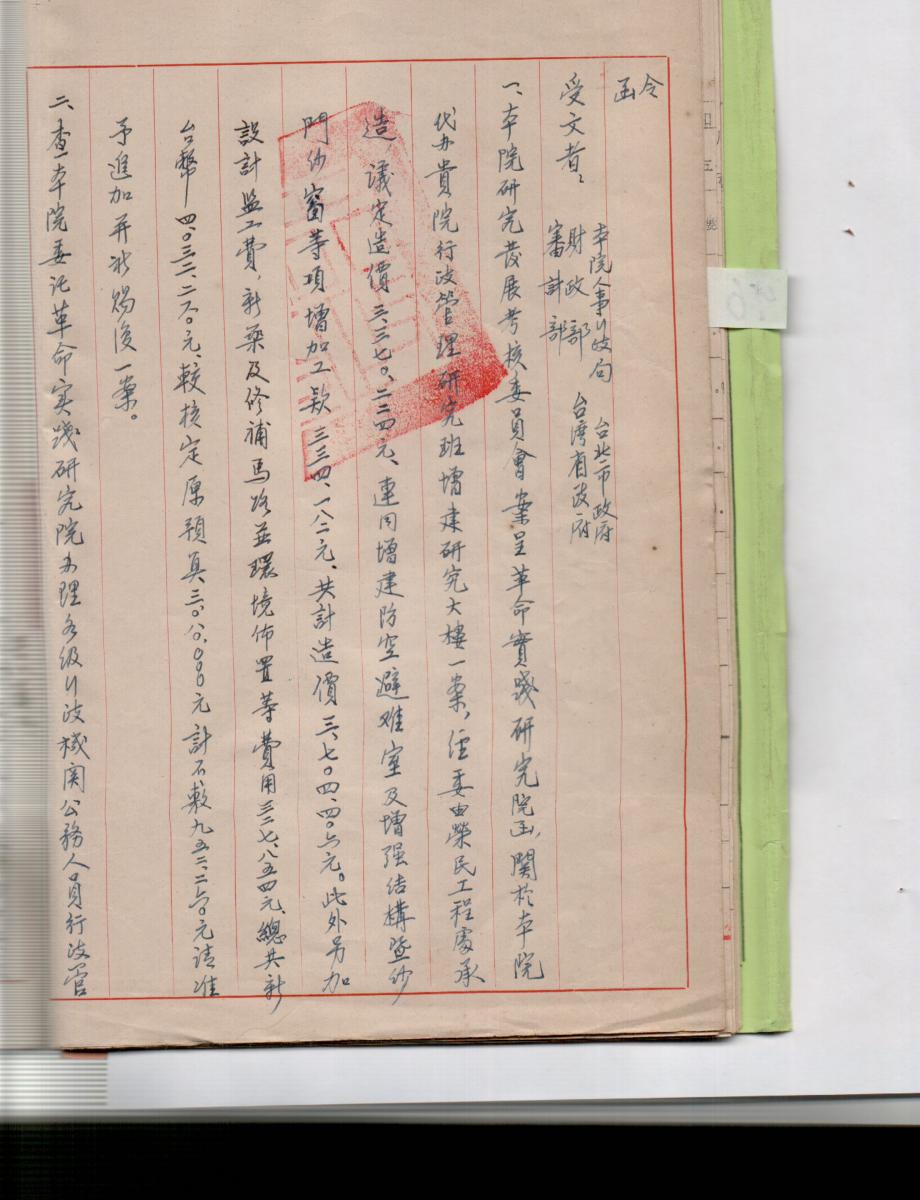 令
函
受文者：
本院人事行政局 台北市政府
財政部 台湾省政府
審計部
一、本院研究發展考核委員會案呈革命實踐研究院函，關於本院
代办貴院行政管理研究班增建研究大樓一案，経委由榮民工程處承
造，議定造價三、三七〇、二二四元、連同增建防空避难室及增强结構暨纱
門纱窗等項增加工款三三四、一八二元、共計造價三、七〇四、四〇六元。此外另加
設計监工費，新築及修補馬路並環境佈置等費用三二七、八五四元、總共新
台幣四、〇三二、二六〇元、較核定原預算三、〇八〇、〇〇〇元計不敷九五二、二六〇元请准
予追加并祈赐復一案。
二、查本院委託革命实践研究院办理各级行政機関公務人員行政管